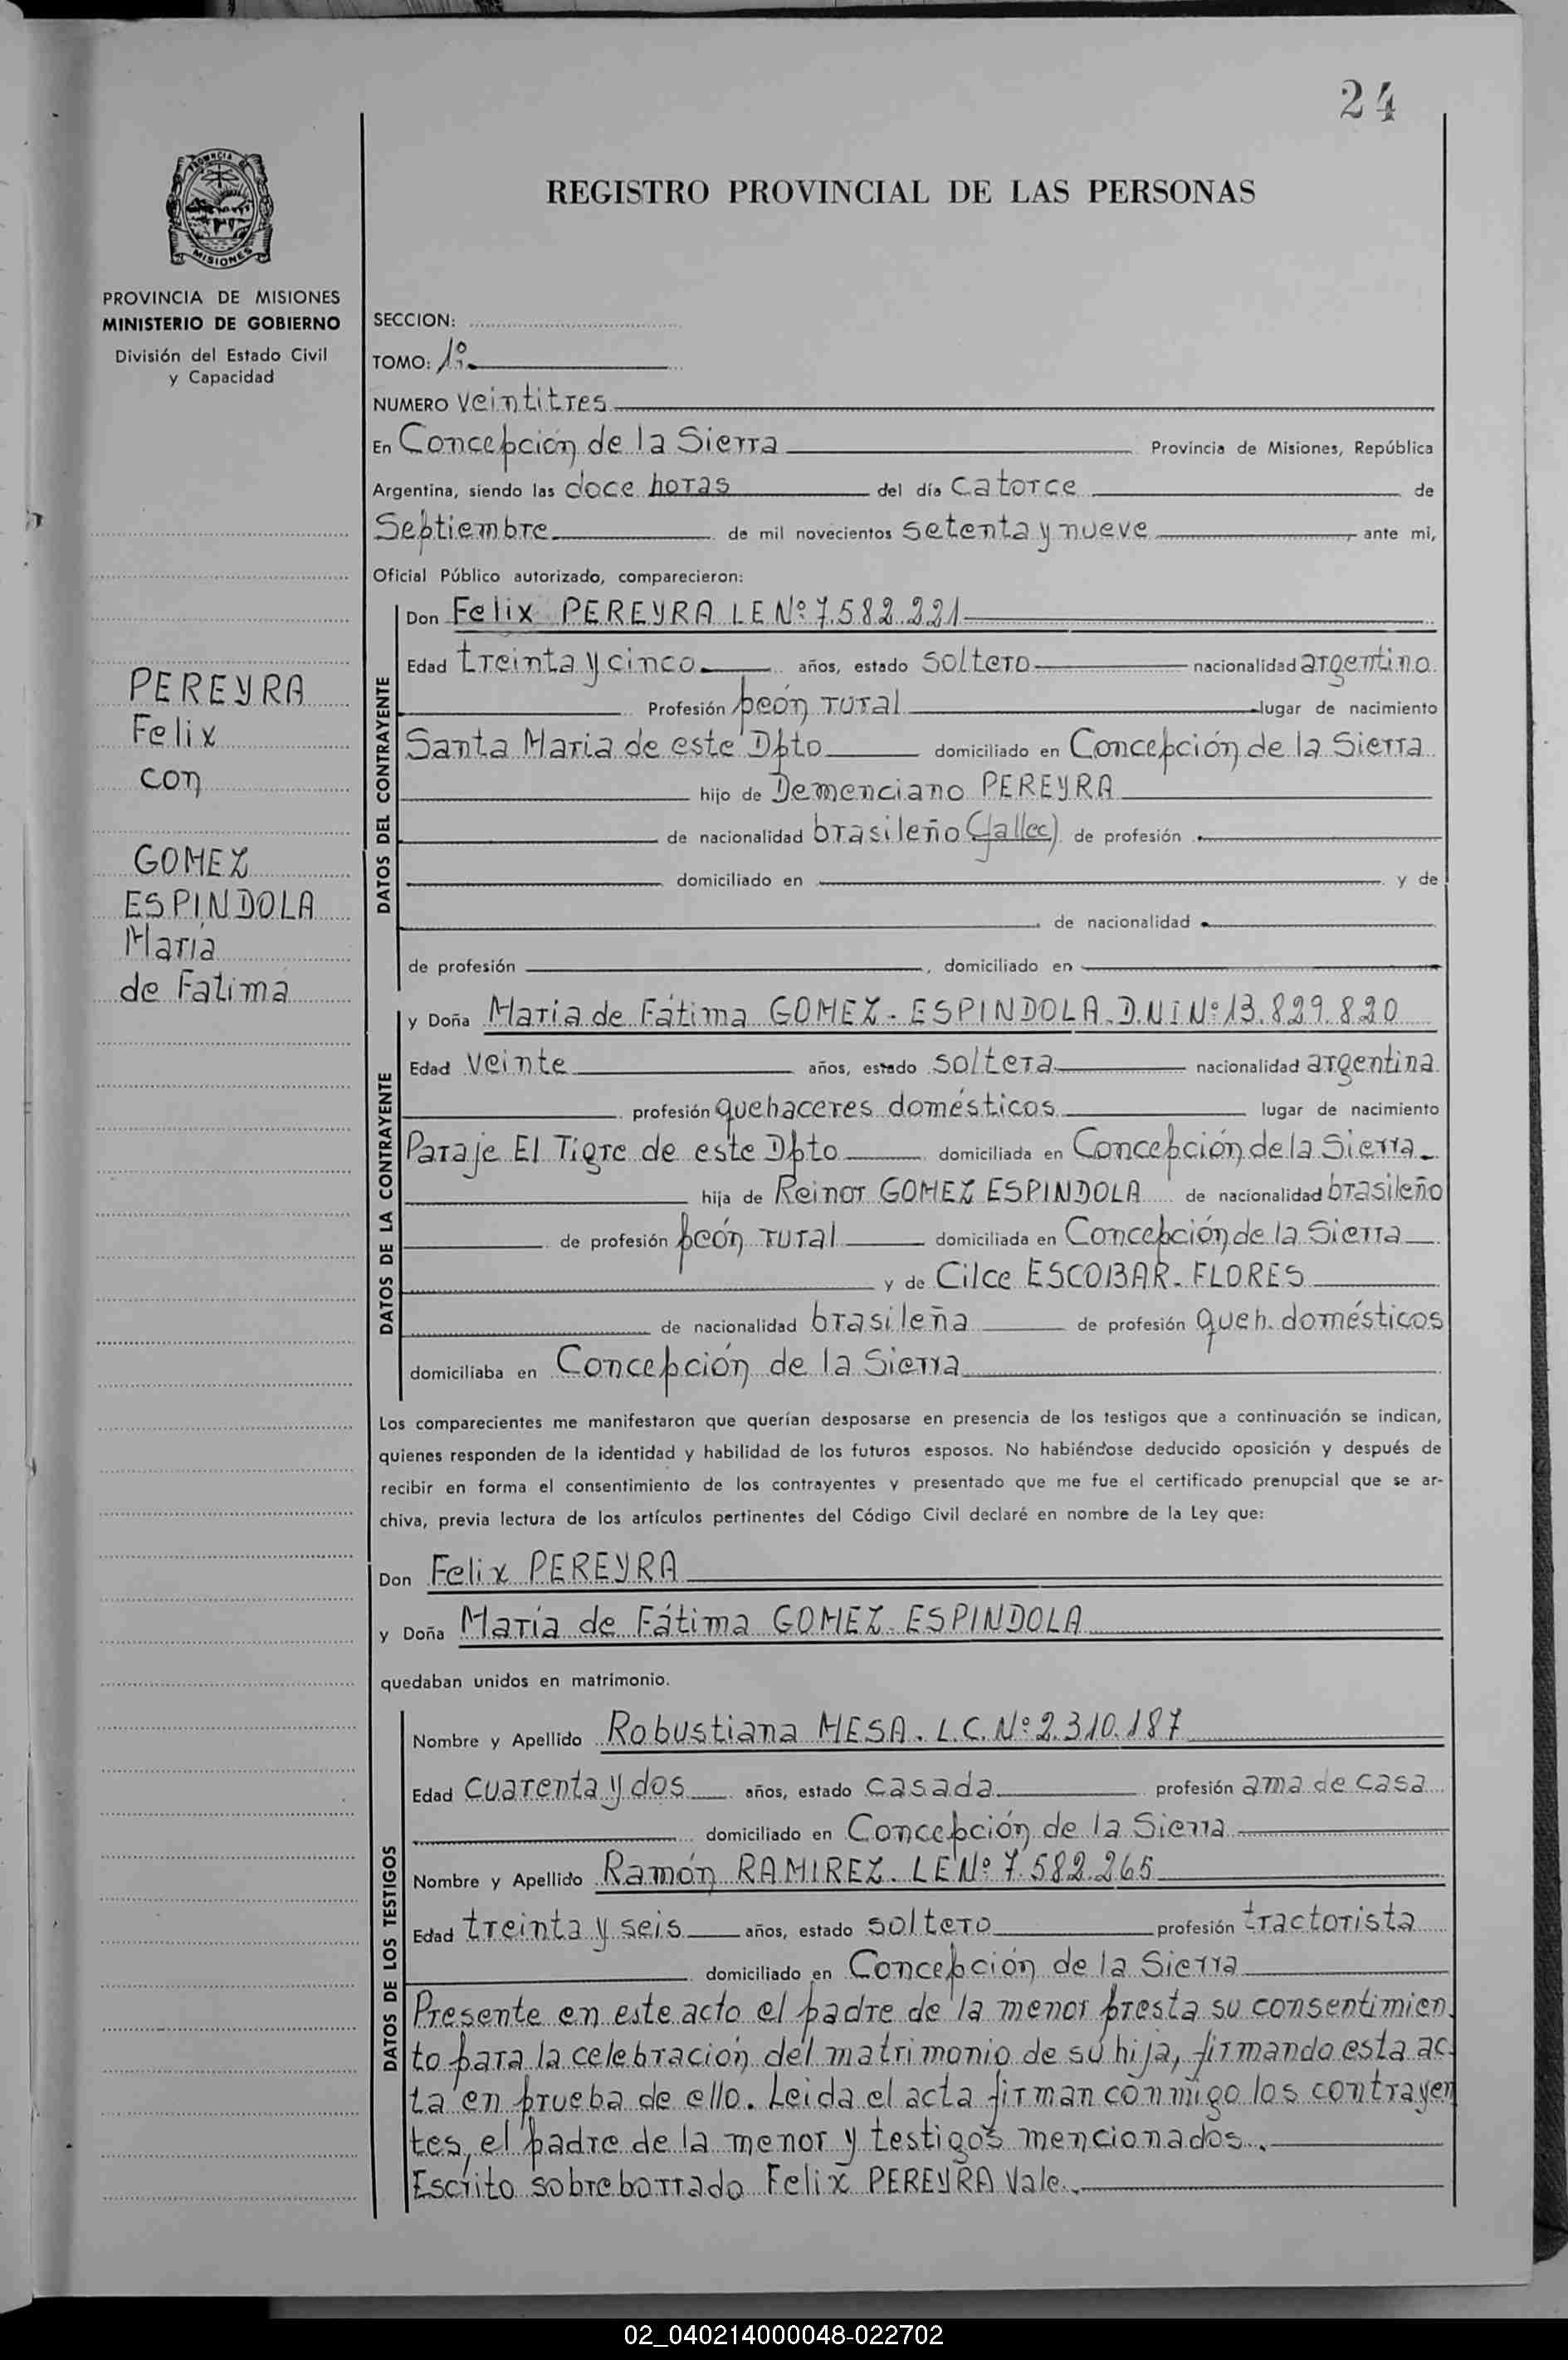 24
PROVINCIA DE
MISIONES
REGISTRO PROVINCIAL DE LAS PERSONAS
PROVINCIA DE MISIONES
MINISTERIO DE GOBIERNO
División del Estado Civil
y Capacidad
PEREYRA
Felix
con
GOMEZ
ESPINDOLA
María
de Fatima
SECCION:
TOMO: 1º
NUMERO veintitres
En Concepción de la Sierra Provincia de Misiones, República
Argentina, siendo las doce horas del día catorce de
Septiembre de mil novecientos setenta y nueve, ante mi,
Oficial Público autorizado, comparecieron:
DATOS DEL CONTRAYENTE
Don Felix PEREYRA LE Nº 7.582.221
Edad treinta y cinco años, estado soltero nacionalidad argentino
Profesión peón rural lugar de nacimiento
Santa Maria de este Dpto domiciliado en Concepción de la Sierra
hijo de Demenciano PEREYRA
de nacionalidad brasileño (fallec) de profesión
domiciliado en y de
de nacionalidad
de profesión , domiciliado en
DATOS DE LA CONTRAYENTE
y Doña Maria de Fátima GOMEZ-ESPINDOLA.D.N I Nº 13.829.820
Edad veinte años, estado soltera nacionalidad argentina
profesión quehaceres domésticos lugar de nacimiento
Paraje El Tigre de este Dpto domiciliada en Concepción de la Sierra
hija de Reinor GOMEZ ESPINDOLA de nacionalidad brasileño
de profesión peón rural domiciliada en Concepción de la Sierra
y de Cilce ESCOBAR-FLORES
de nacionalidad brasileña de profesión queh. domésticos
domiciliaba en Concepción de la Sierra
Los comparecientes me manifestaron que querían desposarse en presencia de los testigos que a continuación se indican,
quienes responden de la identidad y habilidad de los futuros esposos. No habiéndose deducido oposición y después de
recibir en forma el consentimiento de los contrayentes y presentado que me fue el certificado prenupcial que se ar-
chiva, previa lectura de los artículos pertinentes del Código Civil declaré en nombre de la Ley que:
Don Felix PEREYRA
y Doña María de Fátima GOMEZ-ESPINDOLA
quedaban unidos en matrimonio.
DATOS DE LOS TESTIGOS
Nombre y Apellido Robustiana MESA. L.C. Nº 2.310.187
Edad cuarenta y dos años, estado casada profesión ama de casa
domiciliado en Concepción de la Sierra
Nombre y Apellido Ramón RAMIREZ. LE Nº 7.582.265
Edad treinta y seis años, estado soltero profesión tractorista
domiciliado en Concepción de la Sierra
Presente en este acto el padre de la menor presta su consentimien-
to para la celebración del matrimonio de su hija, firmando esta ac-
ta en prueba de ello. Leida el acta firman conmigo los contrayen
tes, el padre de la menor y testigos mencionados.
Escrito sobreborrado Felix PEREYRA Vale.
02_040214000048-022702